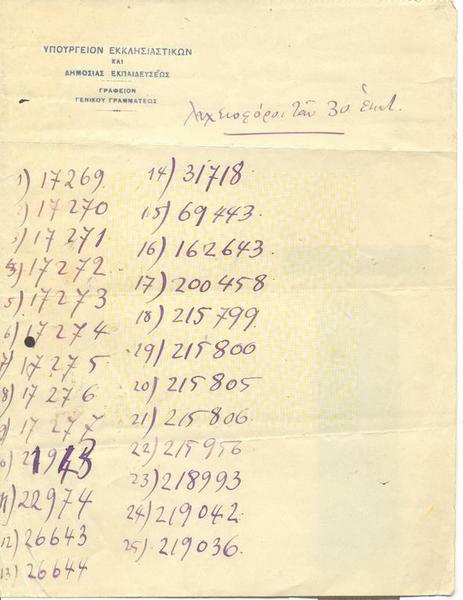 ΥΠΟΥΡΓΕΙΟΝ ΕΚΚΛΗΣΙΑΣΤΙΚΩΝ
ΚΑΙ
ΔΗΜΟΣΙΑΣ ΕΚΠΑΙΔΕΥΣΕΩΣ
ΓΡΑΦΕΙΟΝ
ΓΕΝΙΚΟΥ ΓΡΑΜΜΑΤΕΩΣ
Λαχειοφόροι τῶν 30 ἑκατ.
1) 17269
17270
17271
17272
5) 17273
6) 17274
7) 17275
8) 17276
9) 17277
11) 22974
12) 26643
13) 26644
14) 31718
15) 69443
16) 162643
17) 200458
18) 215799
19) 215800
20) 215805
21) 215806
22) 215956
23) 218993
24) 219042
25) 219036